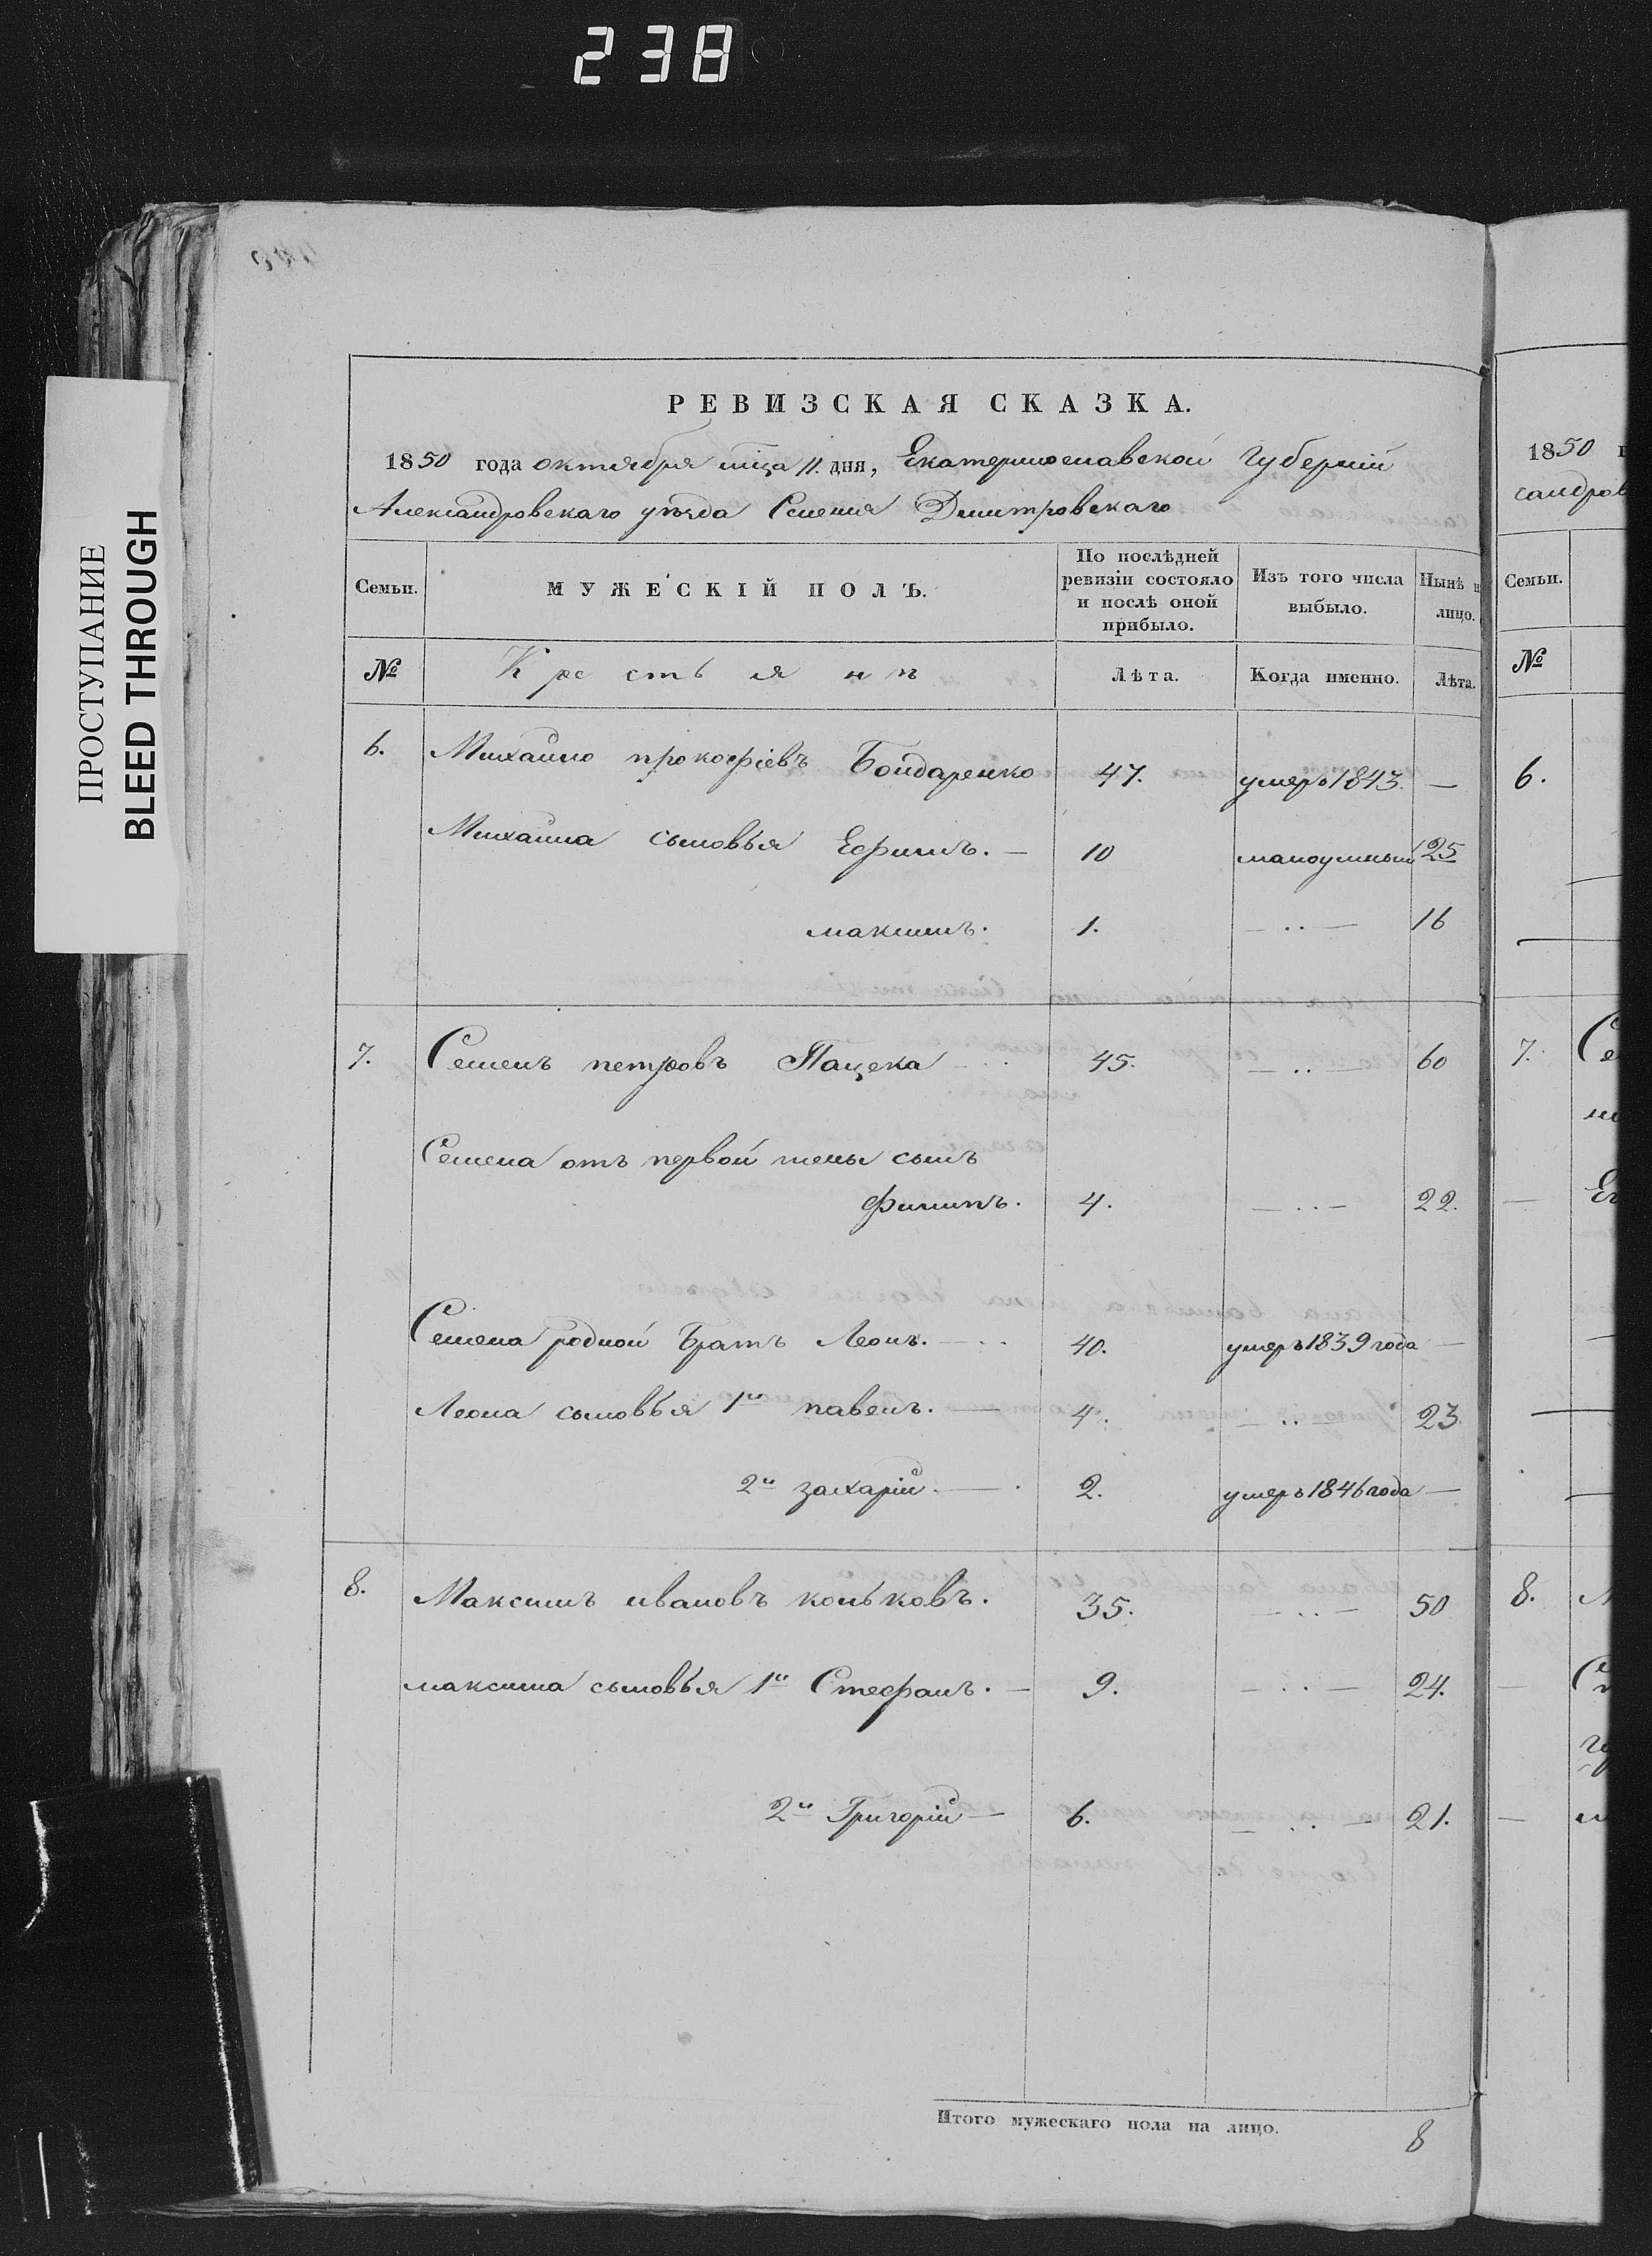 238
ПРОСТУПАНИЕ
BLEED THROUGH
РЕВИЗСКАЯ СКАЗКА.
1850 года октября мца 11 дня, Екатеринославской Губернiи
Александровскаго уѣзда Селения Дмитровскаго
Семьи. МУЖЕСКІЙ ПОЛЪ. По послѣдней ревизіи состояло и послѣ оной прибыло. Изъ того числа выбыло. Нынѣ н лицо.
№ Крестьянъ Лѣта. Когда именно. Лѣта.
6. Михайло прокофіевъ Бондаренко 47. умеръ 1843. —
Михайла сыновья Ефимъ. — 10 малоумный 25
максимъ. 1. — .. — 16
7. Семенъ петровъ Пацека 45. — .. — 60
Семена отъ первой жены сынъ
филипъ. 4. — .. — 22.
Семена родной Братъ Леонъ. — .. 40. умеръ 1839 года —
Леона сыновья 1й павелъ. — 4. — .. — 23
2й захарій. — . 2. умеръ 1846 года —
8. Максимъ ивановъ коньковъ. 35. — .. — 50
максима сыновья 1й Стефанъ. — 9. — .. — 24.
2й Григорій — 6. — .. — 21.
Итого мужескаго пола на лицо. 8
1850
сандров
Семьи.
№
6.
7. Се
8.